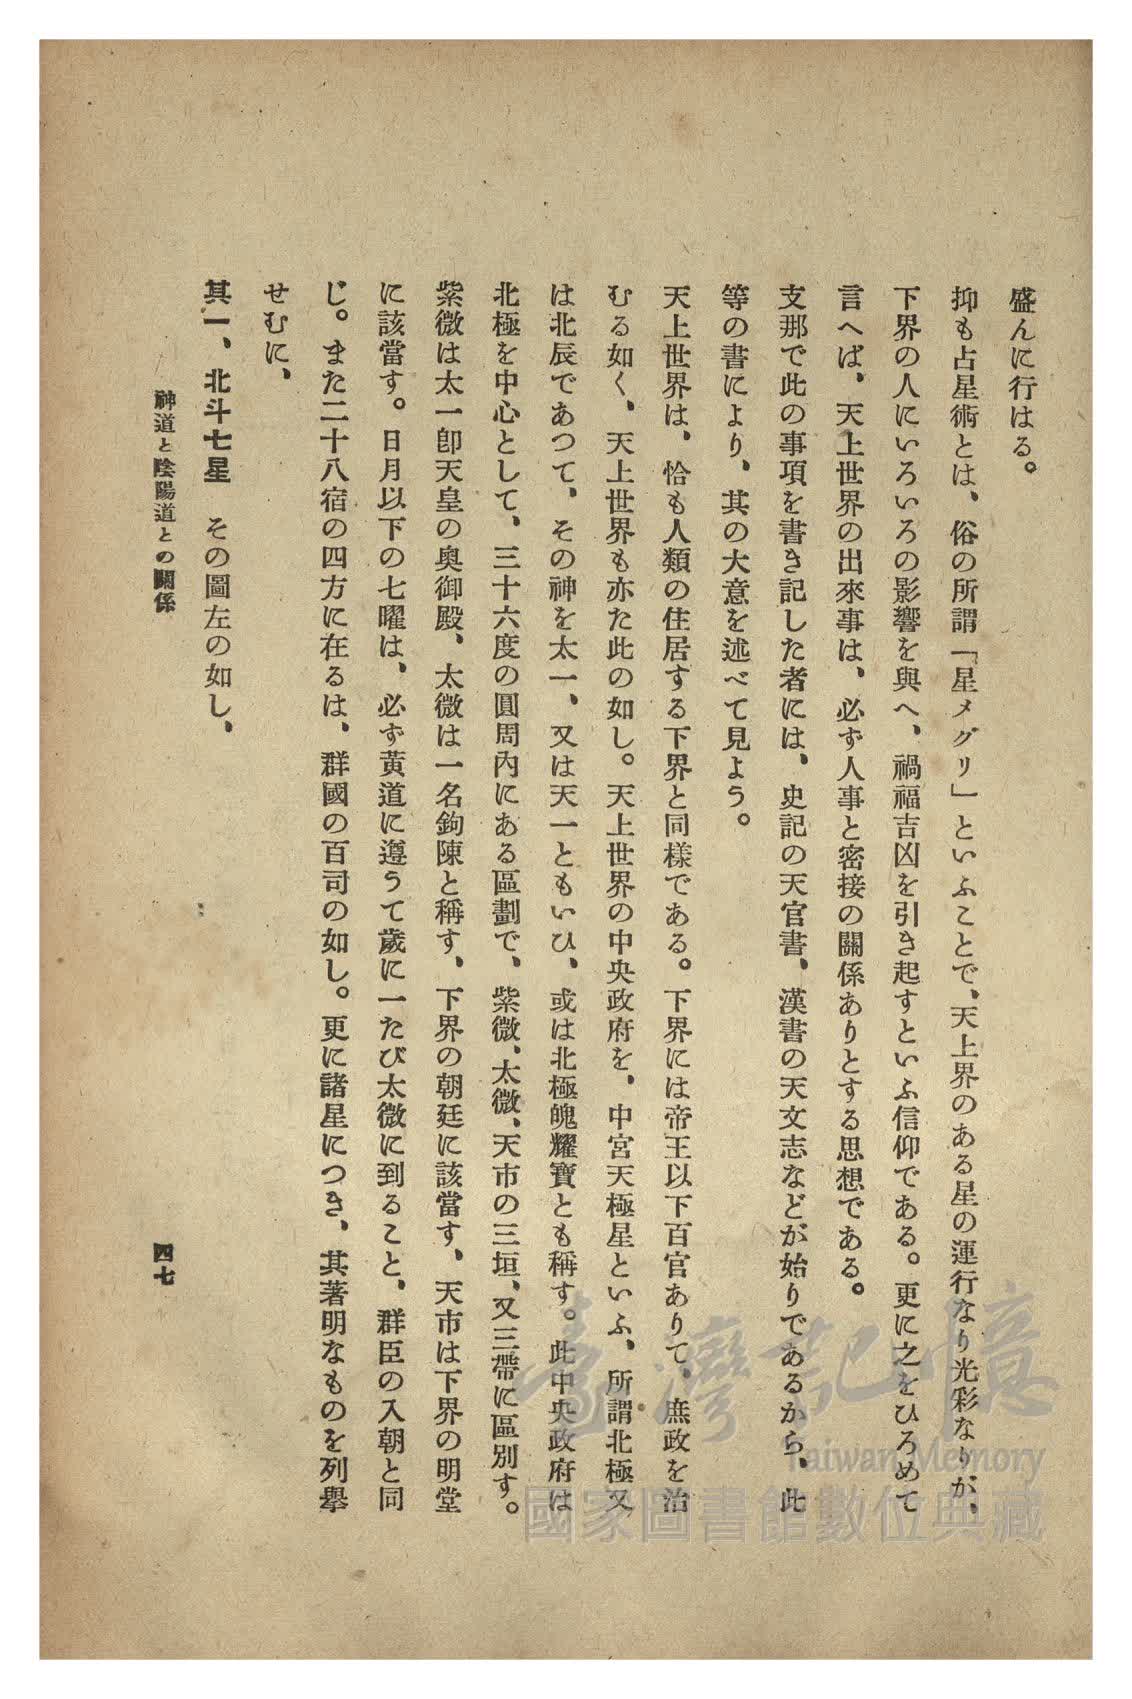 盛んに行はる。
抑も占星術とは、俗の所謂「星メグリ」といふことで、天上界のある星の運行なり光彩なりが、
下界の人にいろいろの影響を與へ、禍福吉凶を引き起すといふ信仰である。更に之をひろめて
言へば、天上世界の出來事は、必ず人事と密接の關係ありとする思想である。
支那で此の事項を書き記した者には、史記の天官書、漢書の天文志などが始りであるから、此
等の書により、其の大意を述べて見よう。
天上世界は、恰も人類の住居する下界と同樣である。下界には帝王以下百官ありて、庶政を治
むる如く、天上世界も亦た此の如し。天上世界の中央政府を、中宮天極星といふ、所謂北極又
は北辰であつて、その神を太一、又は天一ともいひ、或は北極魄耀寶とも稱す。此中央政府は
北極を中心として、三十六度の圓周內にある區劃で、紫微、太微、天市の三垣、又三帶に區別す。
紫微は太一卽天皇の奧御殿、太微は一名鉤陳と稱す、下界の朝廷に該當す、天市は下界の明堂
に該當す。日月以下の七曜は、必ず黃道に遵うて歲に一たび太微に到ること、群臣の入朝と同
じ。また二十八宿の四方に在るは、群國の百司の如し。更に諸星につき、其著明なものを列擧
せむに、
其一、北斗七星　その圖左の如し、
神道と陰陽道との關係
四七
臺灣記憶
Taiwan Memory
國家圖書館數位典藏